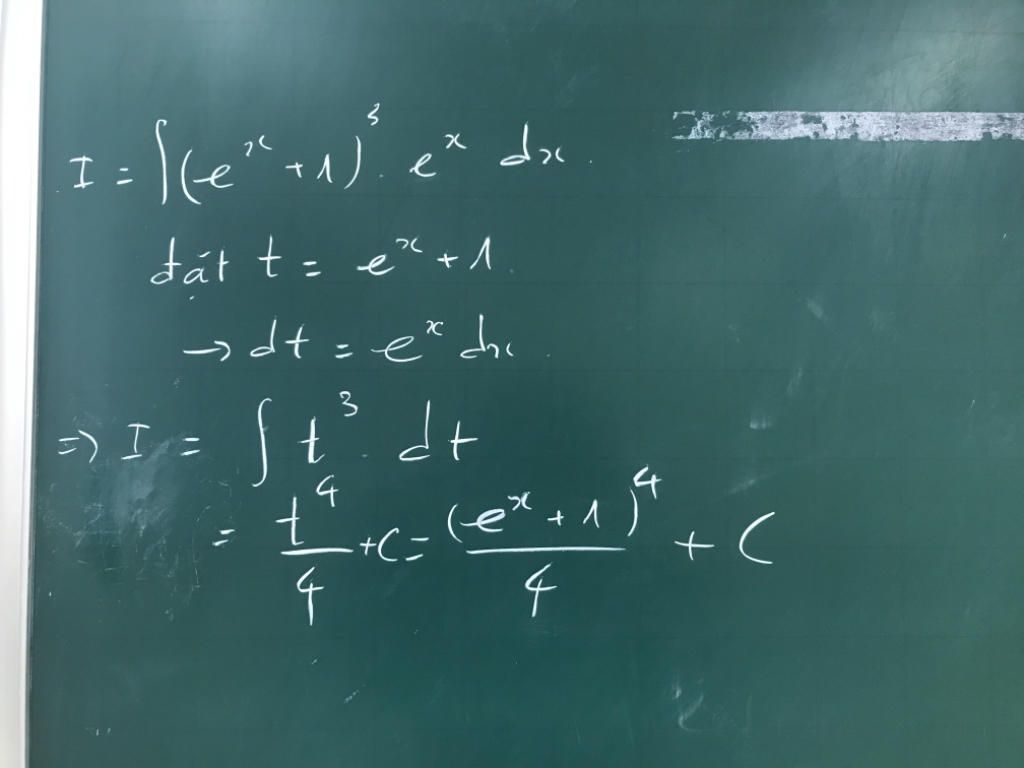 I = ∫(eˣ + 1)³ . eˣ dx .
đặt t = eˣ + 1 .
→ dt = eˣ dx .
=> I = ∫ t³ . dt
= t⁴/4 + C = (eˣ + 1)⁴/4 + C